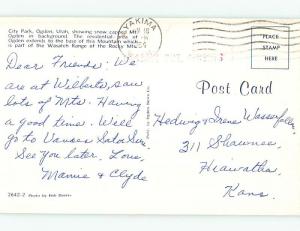 City Park, Ogden, Utah, showing snow capped Mt.
Ogden. The residential area of
Ogden extends to the base of this Mountain which
is part of the Wasatch Range of the Rocky Mts.
YAKIMA
PLACE
STAMP
HERE
Dear Friends: We
are at Wilberts, saw
lots of Mts. Having
a good time. Will
go to Vances Sat or Sun.
See you later, Love,
Mamie & Clyde
Post Card
Hedwig & Irene Wasserfallen
311 Shawnee,
Hiawatha,
Kans.
2642-2 Photo by Bob